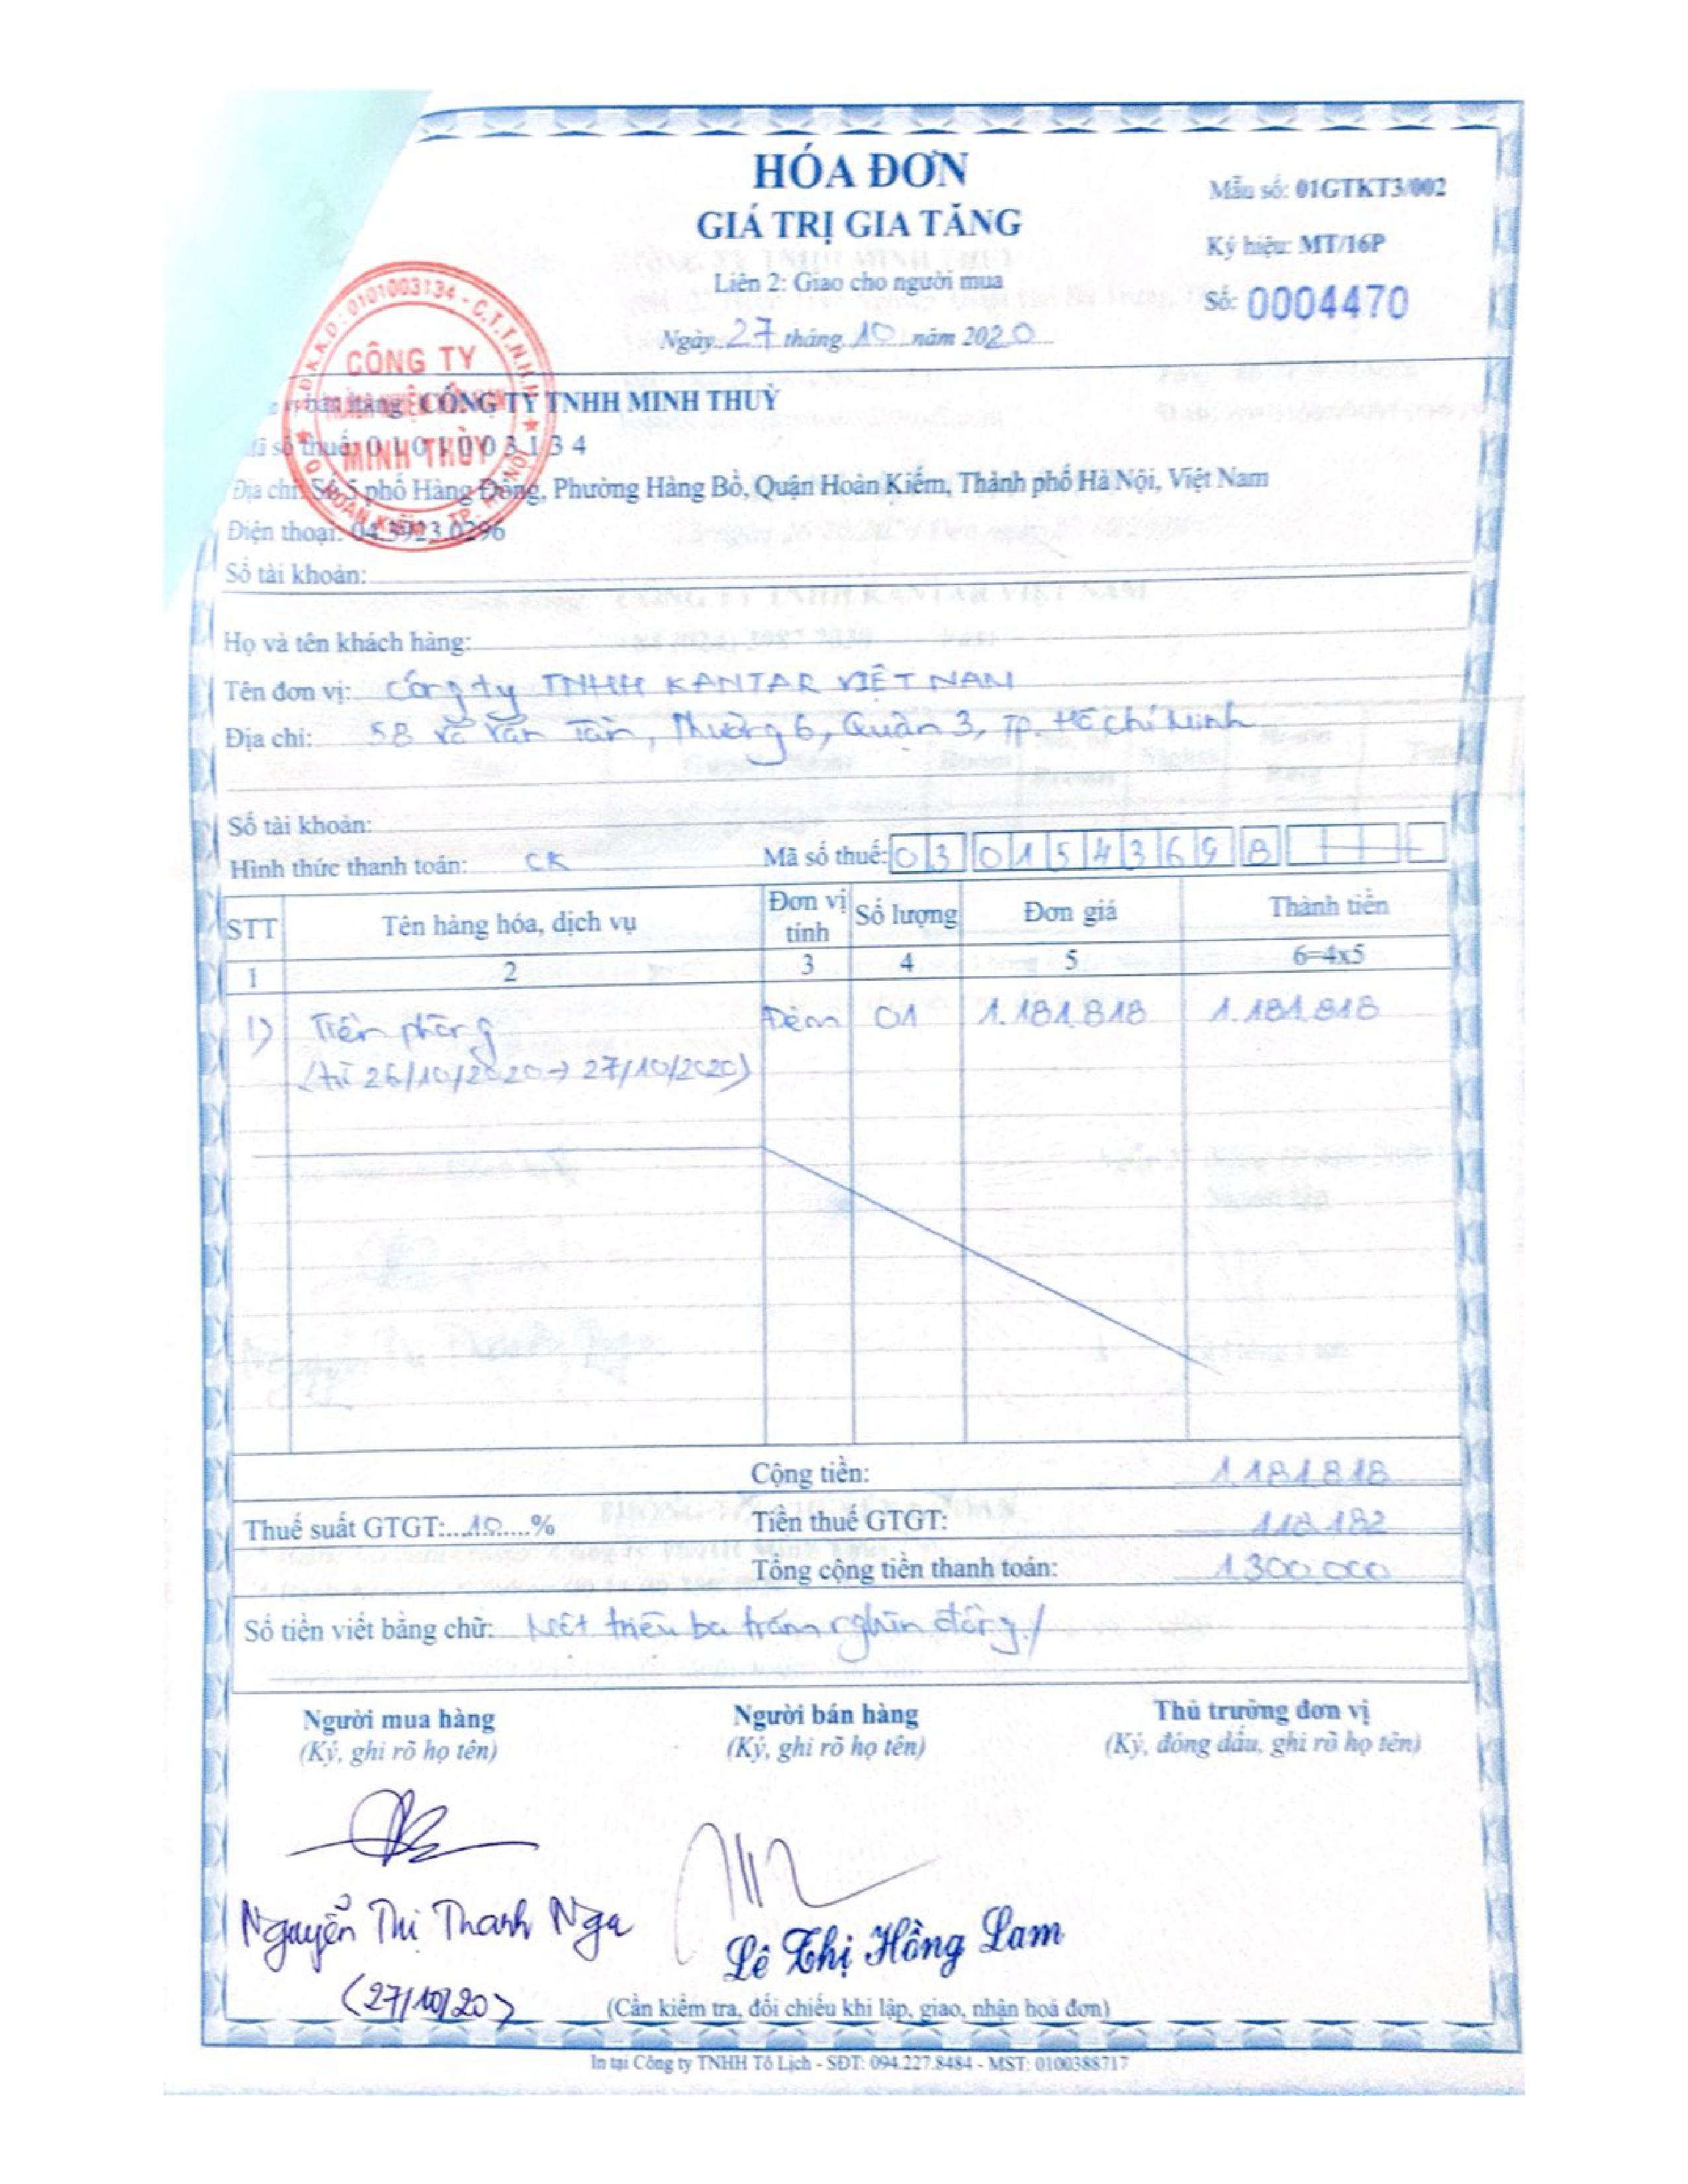 HÓA ĐƠN
GIÁ TRỊ GIA TĂNG
Liên 2: Giao cho người mua
Ngày 27 tháng 10 năm 2020
Mẫu số: 01GTKT3/002
Ký hiệu: MT/16P
Số: 0004470
Đ.K.K.D: 0101003134 - C.T.T.N.H.H
CÔNG TY
MINH THÙY
Q. HOÀN KIẾM - TP. HÀ NỘI
bán hàng: CÔNG TY TNHH MINH THUỲ
số thuế: 0101003134
Địa chỉ: Số 5 phố Hàng Đồng, Phường Hàng Bồ, Quận Hoàn Kiếm, Thành phố Hà Nội, Việt Nam
Điện thoại: 04.3923.0296
Số tài khoản:
Họ và tên khách hàng:
Tên đơn vị: Công ty TNHH KANTAR VIỆT NAM
Địa chỉ: 58 Võ Văn Tần, Phường 6, Quận 3, Tp. Hồ Chí Minh
Số tài khoản:
Hình thức thanh toán: CK Mã số thuế: 0301543698
STT Tên hàng hóa, dịch vụ Đơn vị tính Số lượng Đơn giá Thành tiền
1 2 3 4 5 6=4x5
1) Tiền phòng Đêm 01 1.181.818 1.181.818
(từ 26/10/2020 → 27/10/2020)
Cộng tiền: 1.181.818
Thuế suất GTGT: 10 % Tiền thuế GTGT: 118.182
Tổng cộng tiền thanh toán: 1.300.000
Số tiền viết bằng chữ: Một triệu ba trăm nghìn đồng./
Người mua hàng Người bán hàng Thủ trưởng đơn vị
(Ký, ghi rõ họ tên) (Ký, ghi rõ họ tên) (Ký, đóng dấu, ghi rõ họ tên)
Nguyễn Thị Thanh Nga
Lê Thị Hồng Lam
(27/10/20)
(Cần kiểm tra, đối chiếu khi lập, giao, nhận hoá đơn)
In tại Công ty TNHH Tô Lịch - SĐT: 094.227.8484 - MST: 0100388717